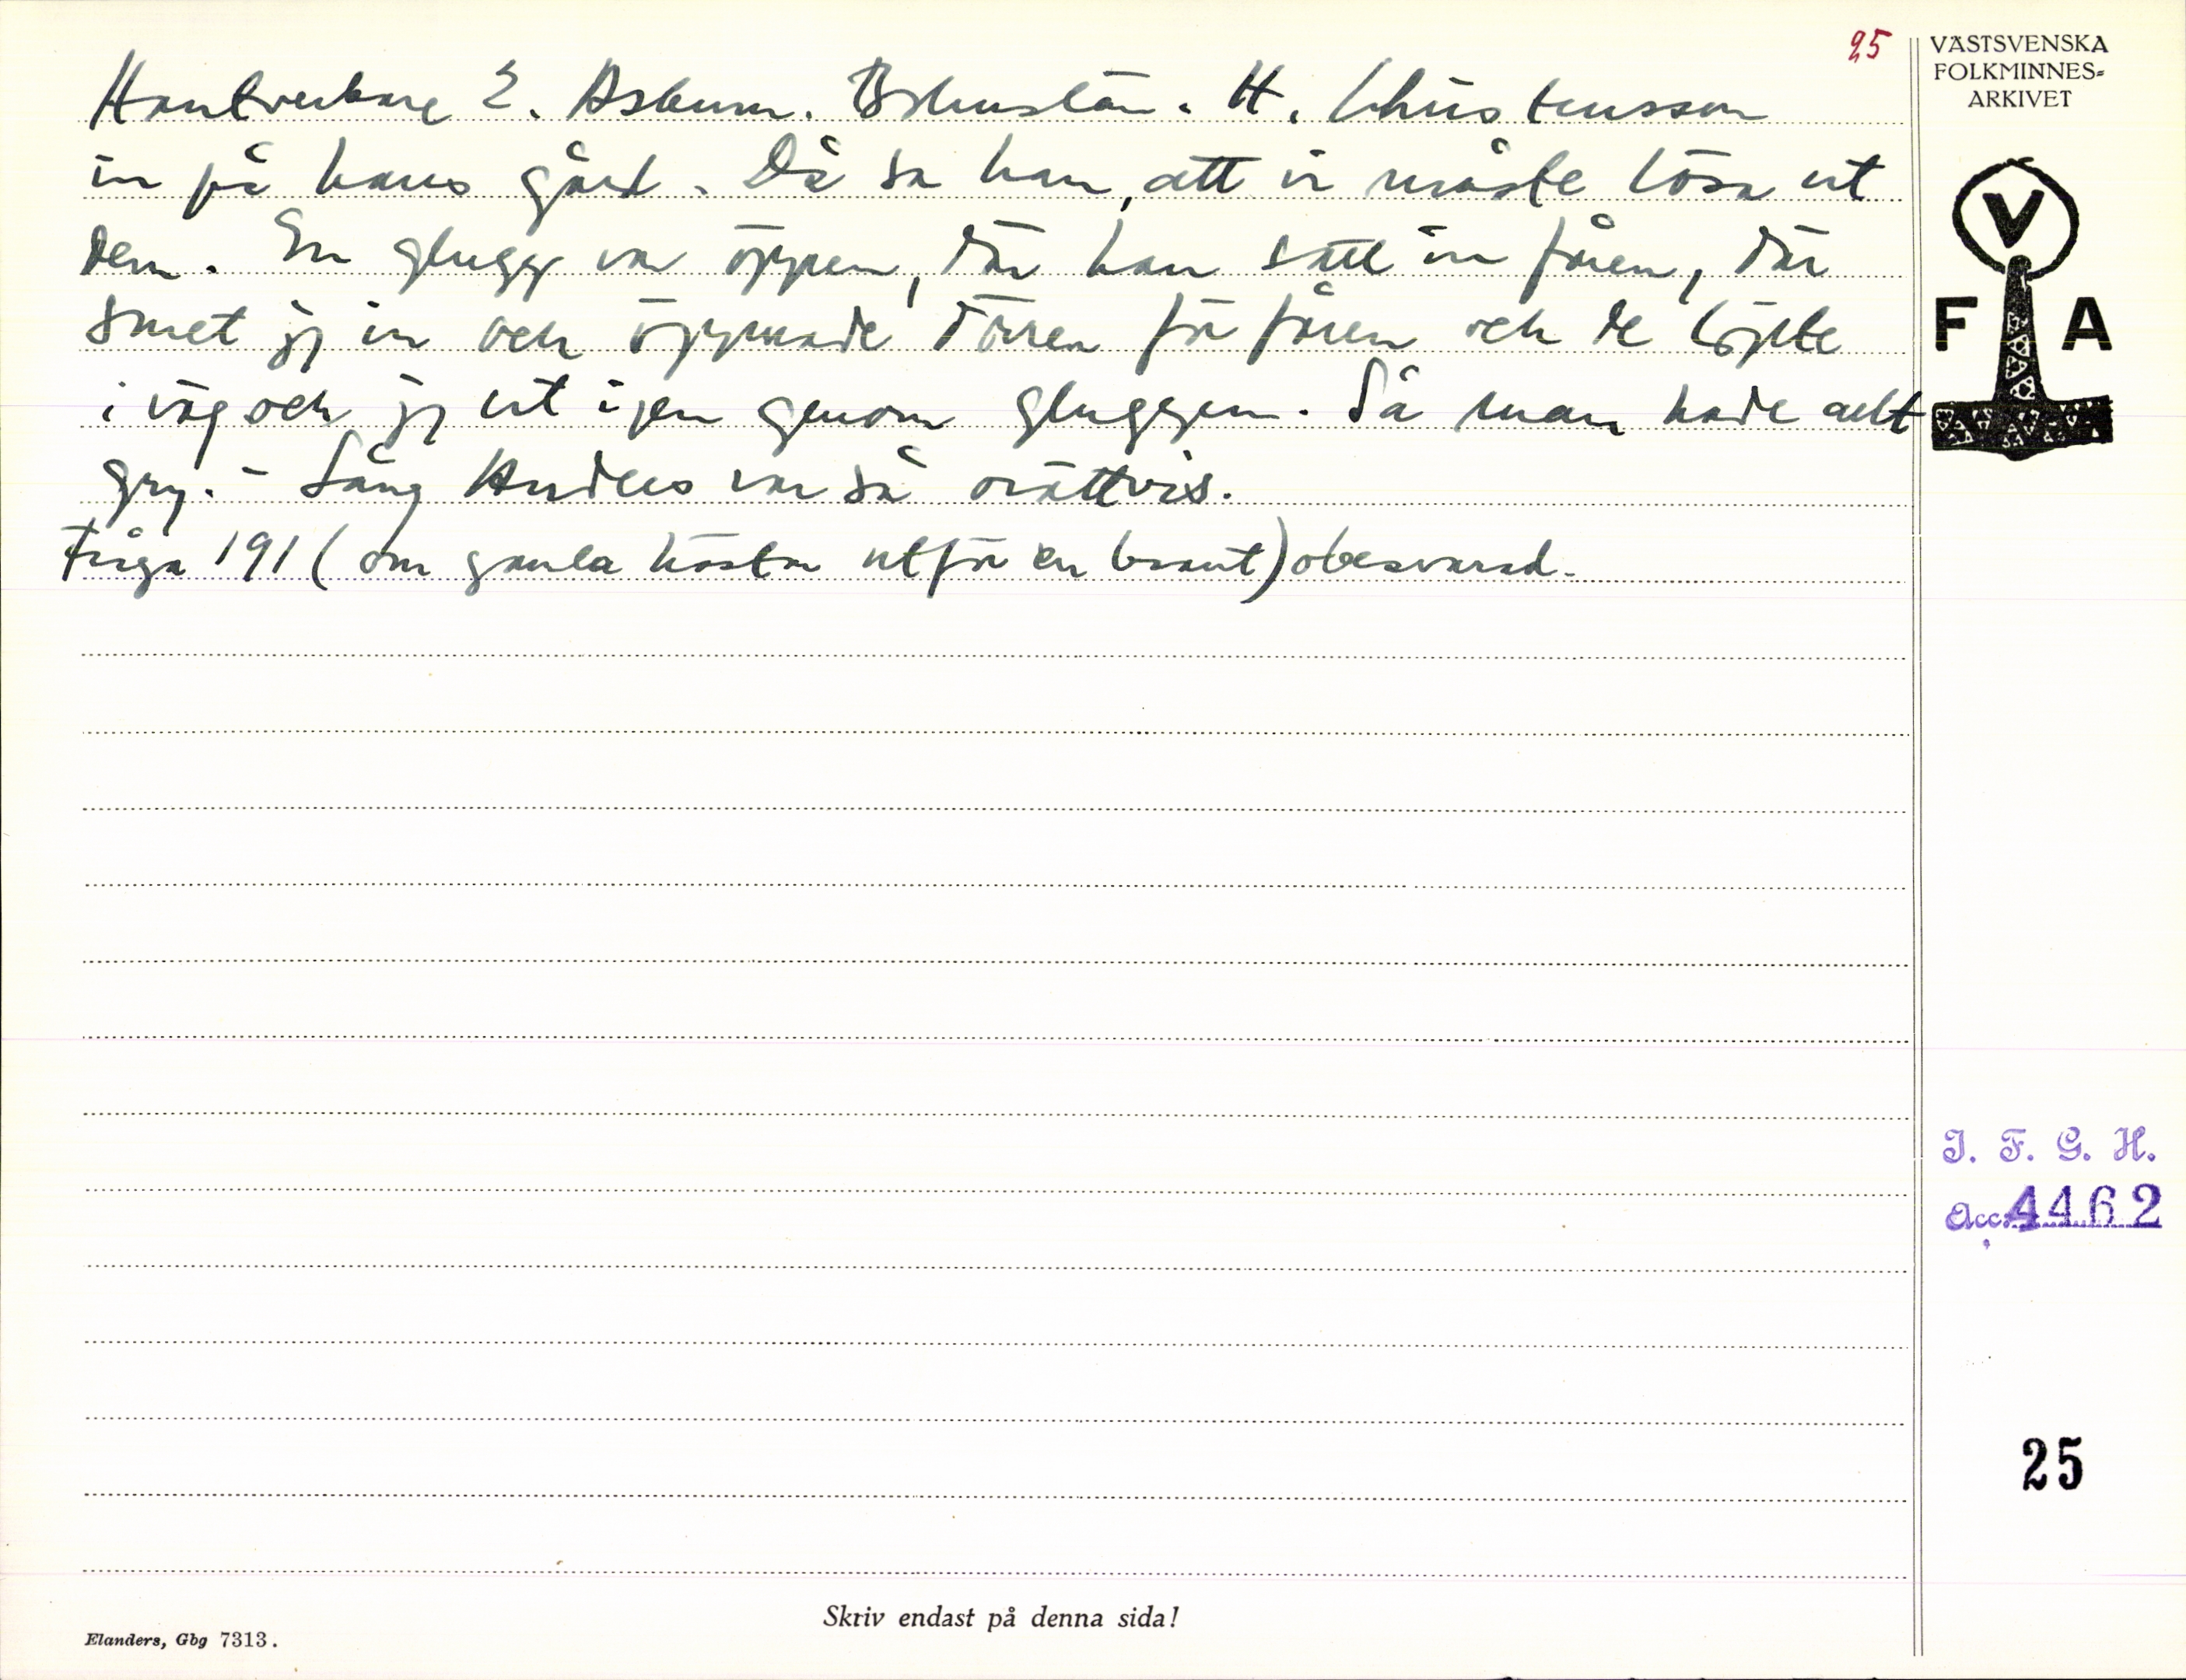 25
VÄSTSVENSKA
FOLKMINNES=
ARKIVET
Hantverkare E. Askum. Bohuslän. H. Christensson
in på hans gård. Då sa han, att vi måste lösa ut
dem. En glugg var öppen, där han satt in fåren, där
smet jag in och öppnade dörren för fåren och de löpte
iväg och jag ut igen genom gluggen. Så man hade allt
gry. – Lång Anders var så orättvis.
Fråga 191 (om gamla hästar utför en brant) obesvarad.
V
F A
I. F. G. H.
Acc. 4462
25
Skriv endast på denna sida!
Elanders, Gbg 7313.